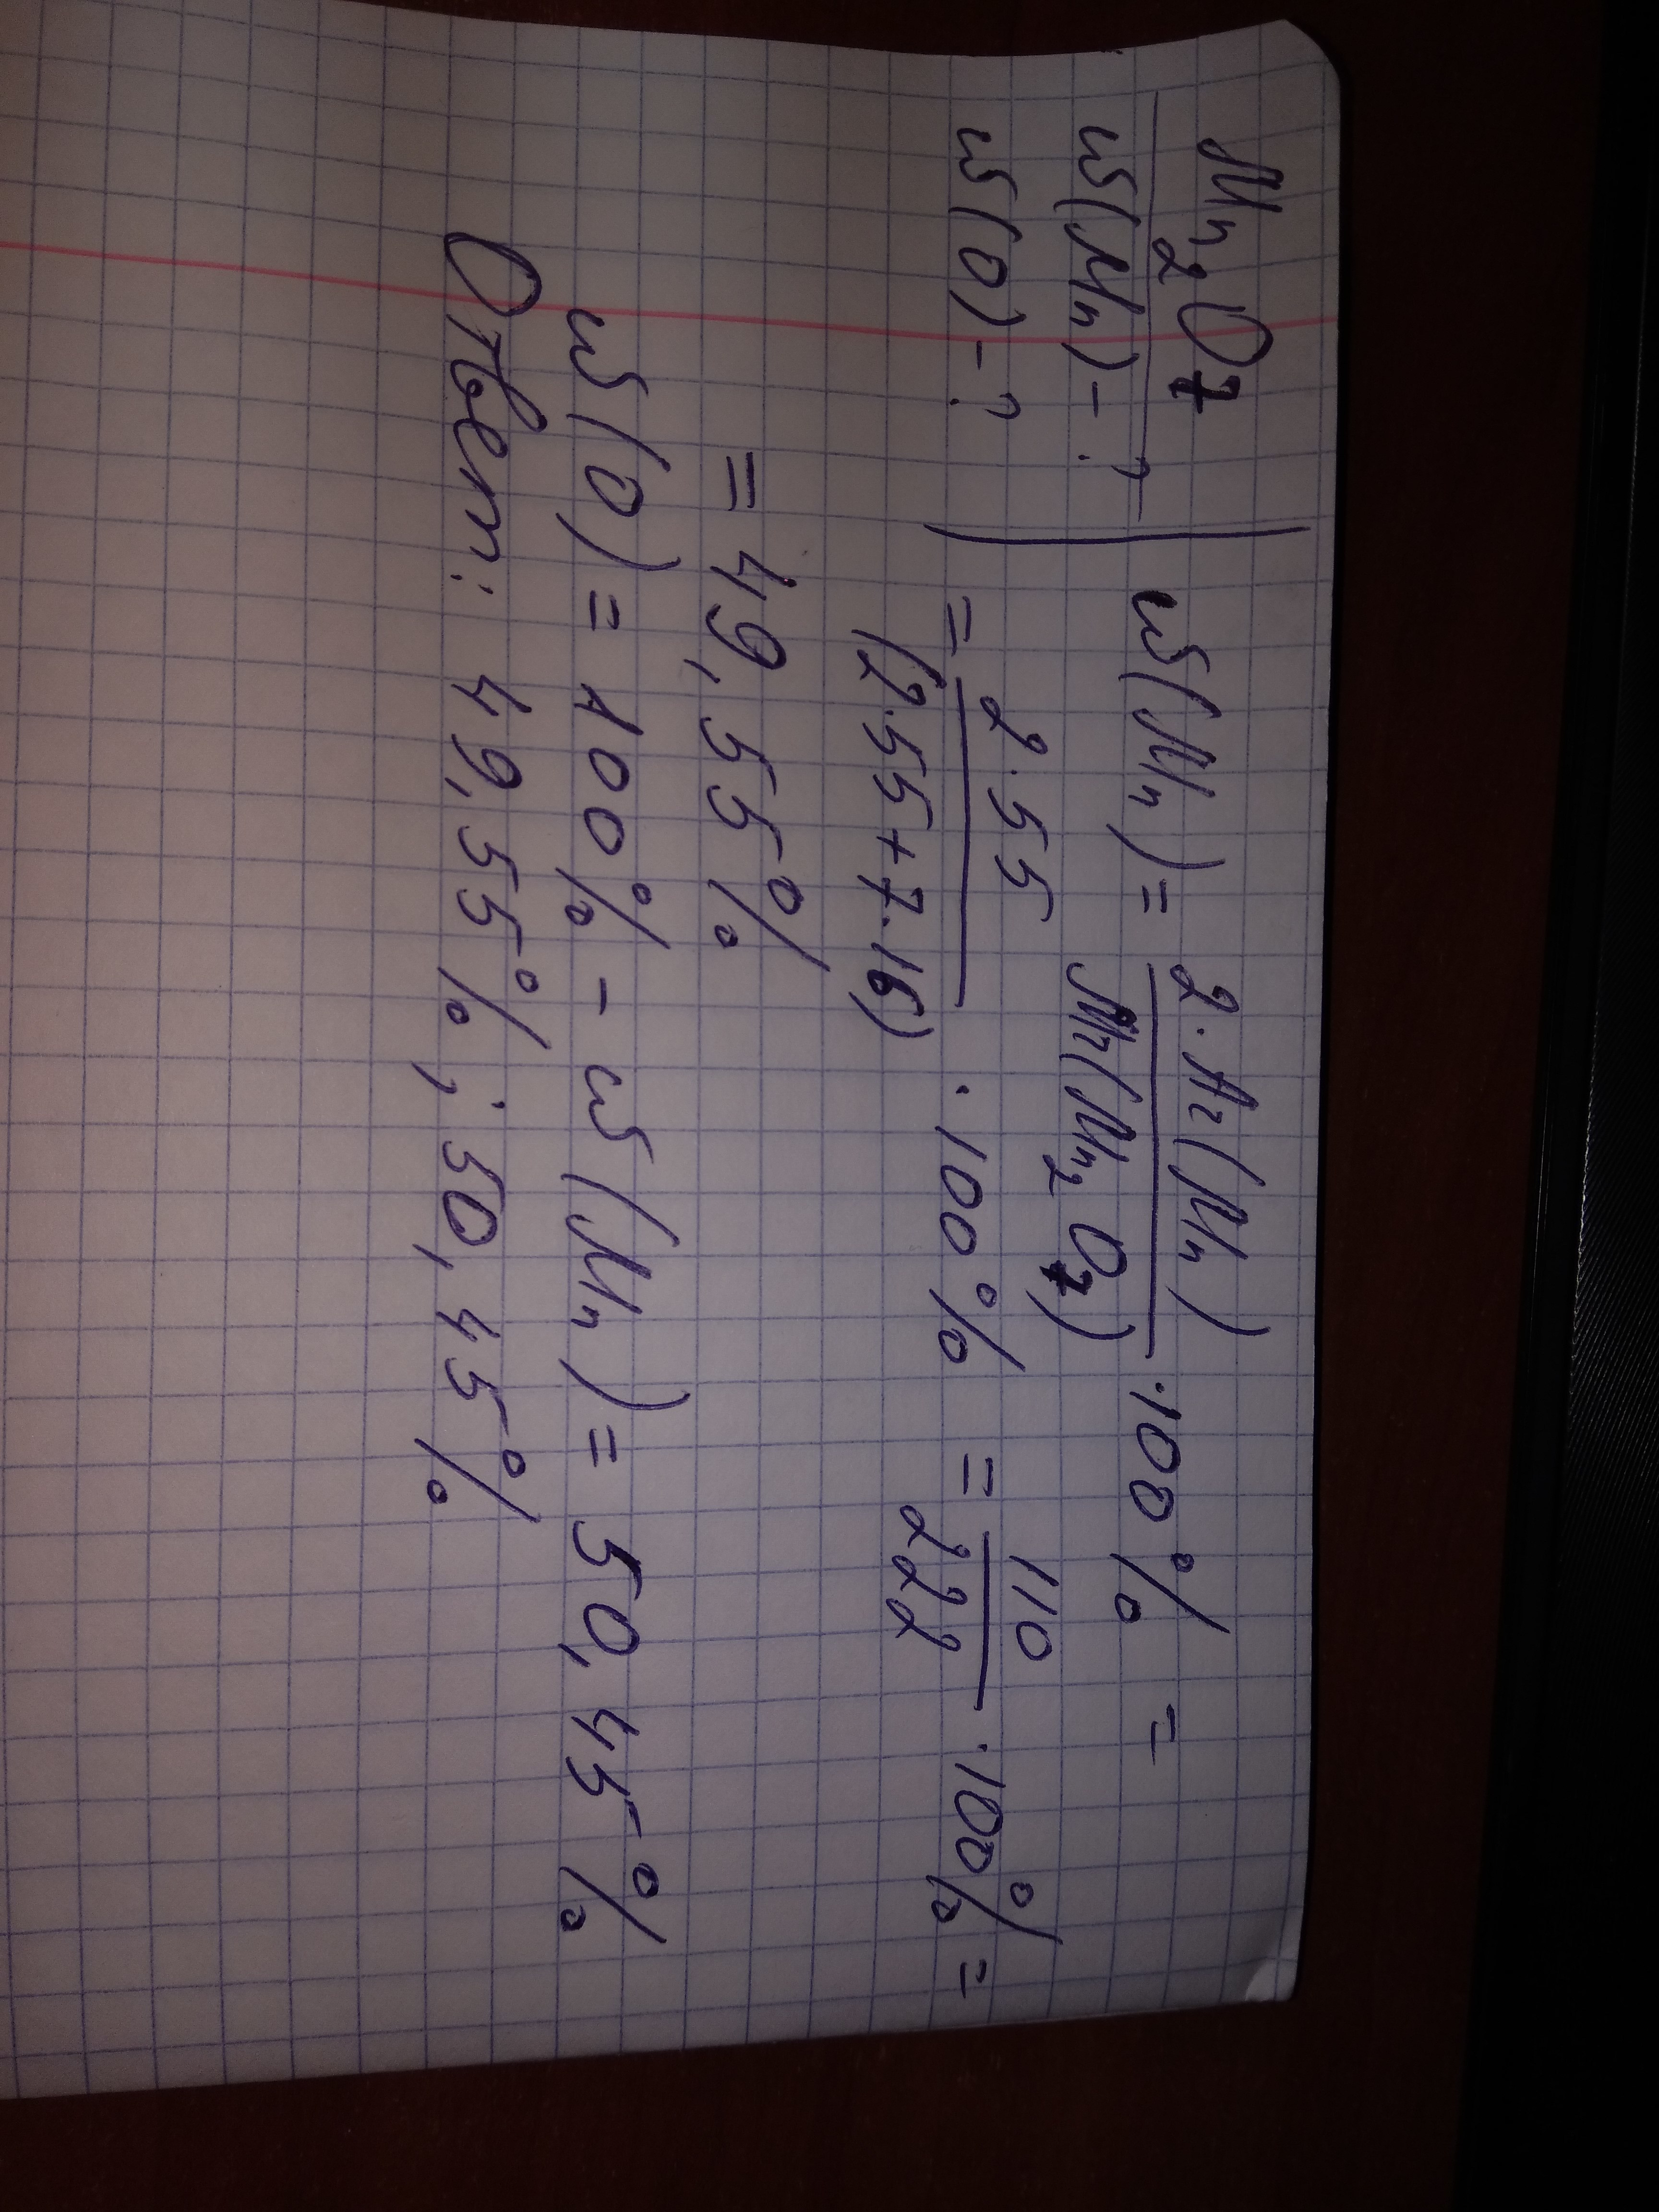 Mn₂O₇
ω(Mn) - ?
ω(O) - ?
ω(Mn) = 2·Ar(Mn) / Mr(Mn₂O₇) ·100% =
= 2·55 / (2·55+7·16) · 100% = 110 / 222 ·100% =
= 49,55%
ω(O) = 100% - ω(Mn) = 50,45%
Ответ: 49,55%; 50,45%